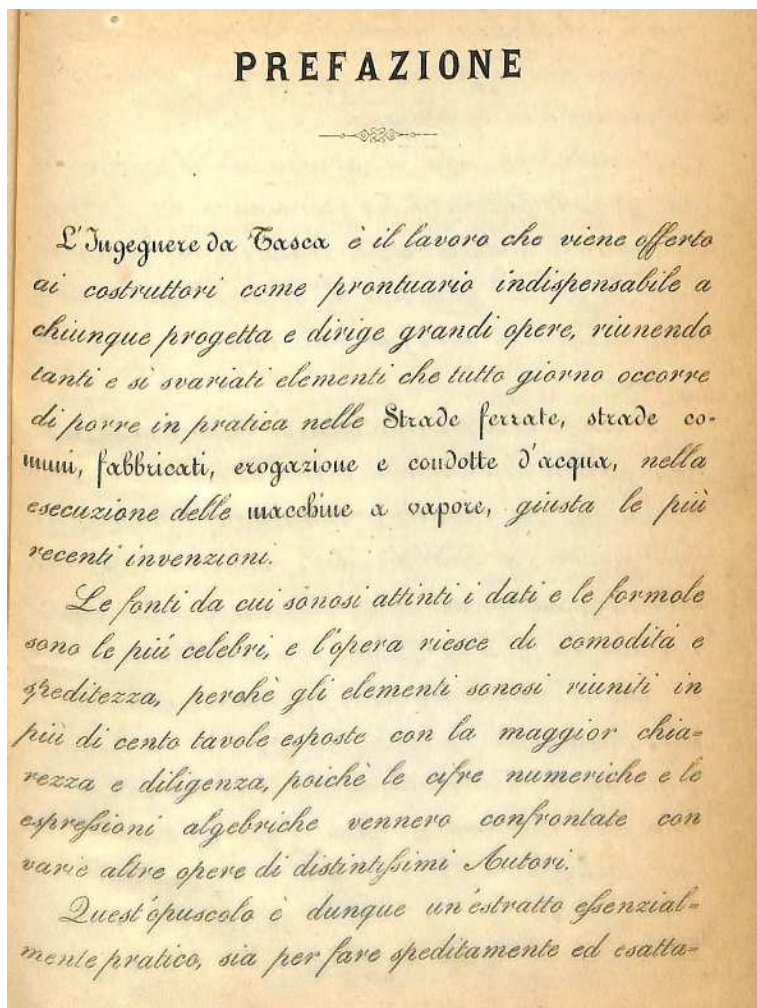 PREFAZIONE
L'Ingegnere da Tasca è il lavoro che viene offerto
ai costruttori come prontuario indispensabile a
chiunque progetta e dirige grandi opere, riunendo
tanti e sì svariati elementi che tutto giorno occorre
di porre in pratica nelle Strade ferrate, strade co-
muni, fabbricati, erogazione e condotte d'acqua, nella
esecuzione delle macchine a vapore, giusta le più
recenti invenzioni.
Le fonti da cui sonosi attinti i dati e le formole
sono le piú celebri, e l'opera riesce di comoditá e
speditezza, perchè gli elementi sonosi riuniti in
più di cento tavole esposte con la maggior chia=
rezza e diligenza, poichè le cifre numeriche e le
espreſsioni algebriche vennero confrontate con
varie altre opere di distintiſsimi Autori.
Quest'opuscolo è dunque un'estratto eſsenzial=
mente pratico, sia per fare speditamente ed esatta=